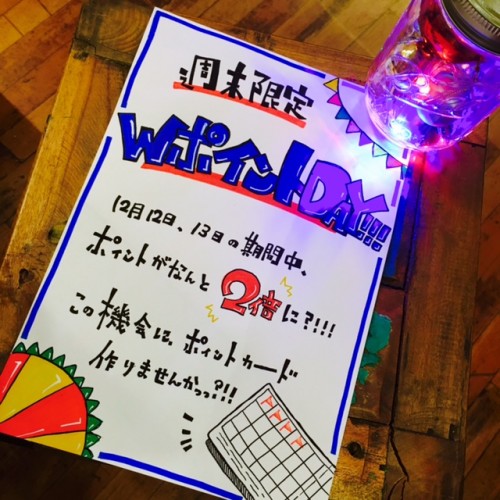 週末限定
WポイントDAY!!!
12月12日、13日の期間中、
ポイントがなんと2倍に?!!!
この機会に、ポイントカード
作りませんかっっ?!!